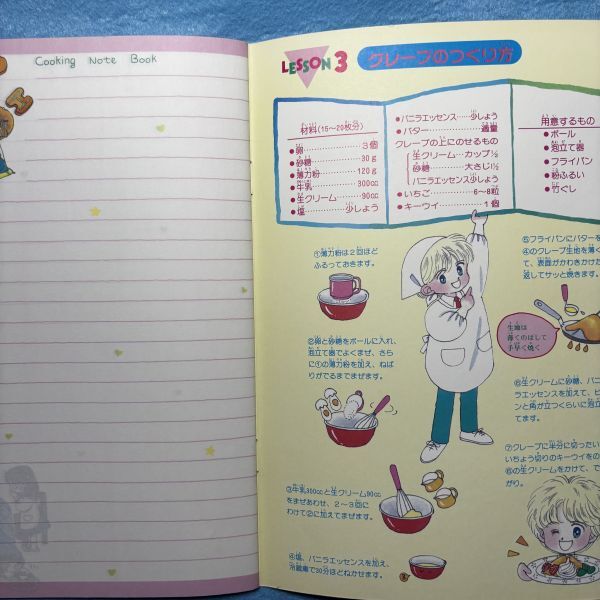 Cooking Note Book
LESSON 3
クレープのつくり方
材料(15〜20枚分)
●卵……………3個
●砂糖…………30g
●薄力粉………120g
●牛乳…………300cc
●生クリーム……90cc
●塩…………少しょう
●バニラエッセンス……少しょう
●バター…………適量
クレープの上にのせるもの
生クリーム…カップ½
砂糖……大さじ1½
バニラエッセンス少しょう
●いちご…………6〜8粒
●キーウイ…………1個
用意するもの
●ボール
●泡立て器
●フライパン
●粉ふるい
●竹ぐし
①薄力粉は2回ほど
ふるっておきます。
②卵と砂糖をボールに入れ、
泡立て器でよくまぜ、さら
に①の薄力粉を加え、ねば
りがでるまでまぜます。
③牛乳300ccと生クリーム90cc
をまぜあわせ、2〜3回に
わけて②に加えてまぜます。
④塩、バニラエッセンスを加え、
冷蔵庫で30分ほどねかせます。
⑤フライパンにバターを
④のクレープ生地を薄く
て、表面がかわきかけた
返してサッと焼きます。
生地は
薄くのばして
手早く焼く
⑥生クリームに砂糖、バニ
ラエッセンスを加えて、ピ
ンと角が立つくらいに泡立
てます。
⑦クレープに半分に切ったい
いちょう切りのキーウイをの
⑥の生クリームをかけて、で
がり。